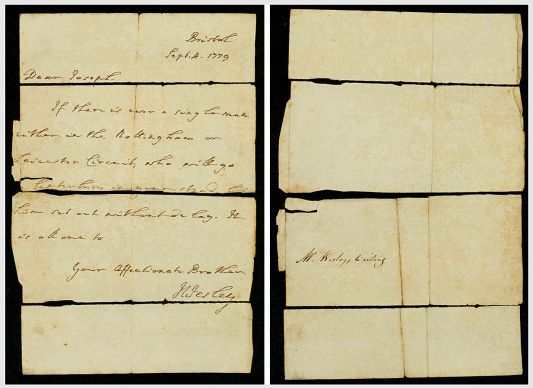 Bristol
Sept. 4. 1779
Dear Joseph,
If there is ever a single man
either in the Nottingham or
Leicester Circuit, who will go
to Canterbury in your stead, let
him set out without delay. It
is all one to
Your Affectionate Brother
J Wesley
Mr. Wesleys writing